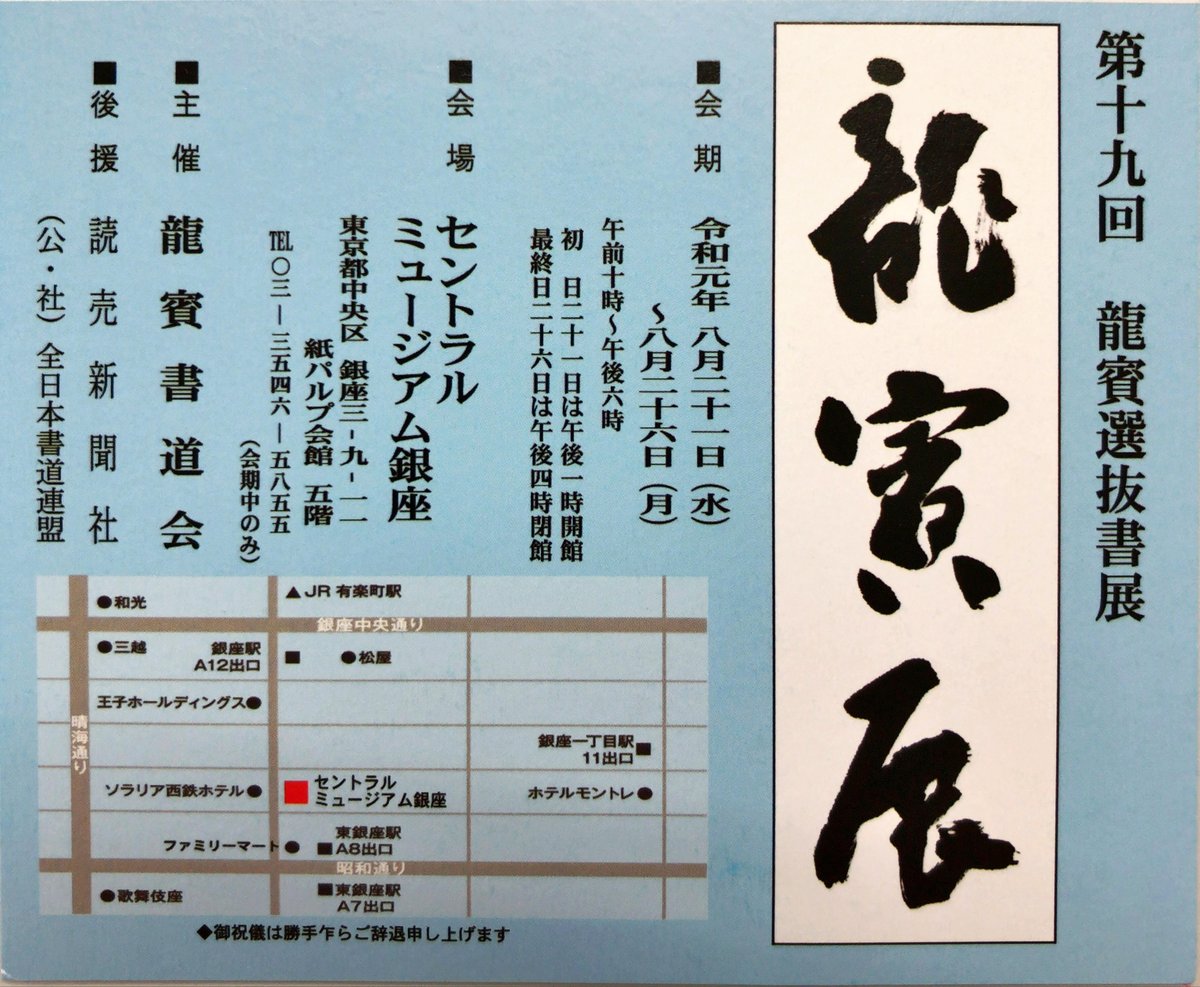 第十九回 龍賓選抜書展
龍賓展
■会期 令和元年 八月二十一日（水）
～八月二十六日（月）
午前十時～午後六時
初 日二十一日は午後一時開館
最終日二十六日は午後四時閉館
■会場 セントラル
ミュージアム銀座
東京都中央区 銀座三-九-一一
紙パルプ会館 五階
℡〇三―三五四六―五八五五
（会期中のみ）
■主催 龍賓書道会
■後援 読売新聞社
（公・社）全日本書道連盟
●和光
▲JR 有楽町駅
銀座中央通り
●三越
銀座駅
A12出口
■
●松屋
王子ホールディングス●
晴海通り
銀座一丁目駅
11出口■
ソラリア西鉄ホテル●
セントラル
ミュージアム銀座
ホテルモントレ●
ファミリーマート●
東銀座駅
■A8出口
昭和通り
●歌舞伎座
■東銀座駅
A7出口
◆御祝儀は勝手乍らご辞退申し上げます